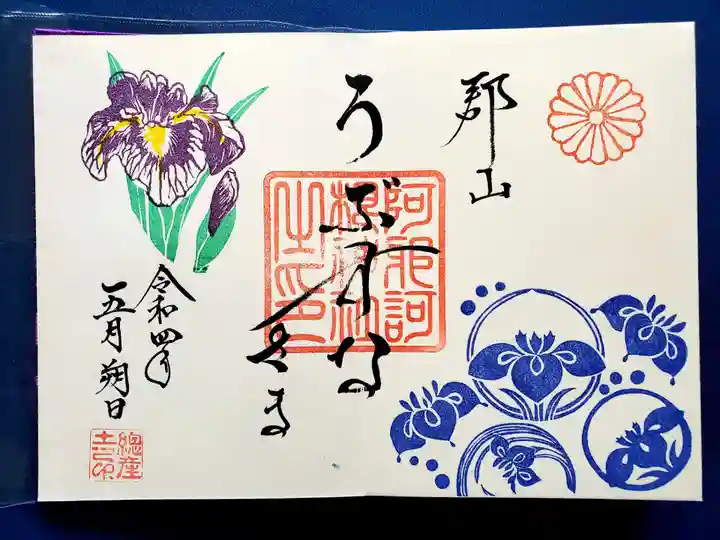 郡山
うぶすな
さま
阿邪訶
根神社
之印
令和四年
五月朔日
總産